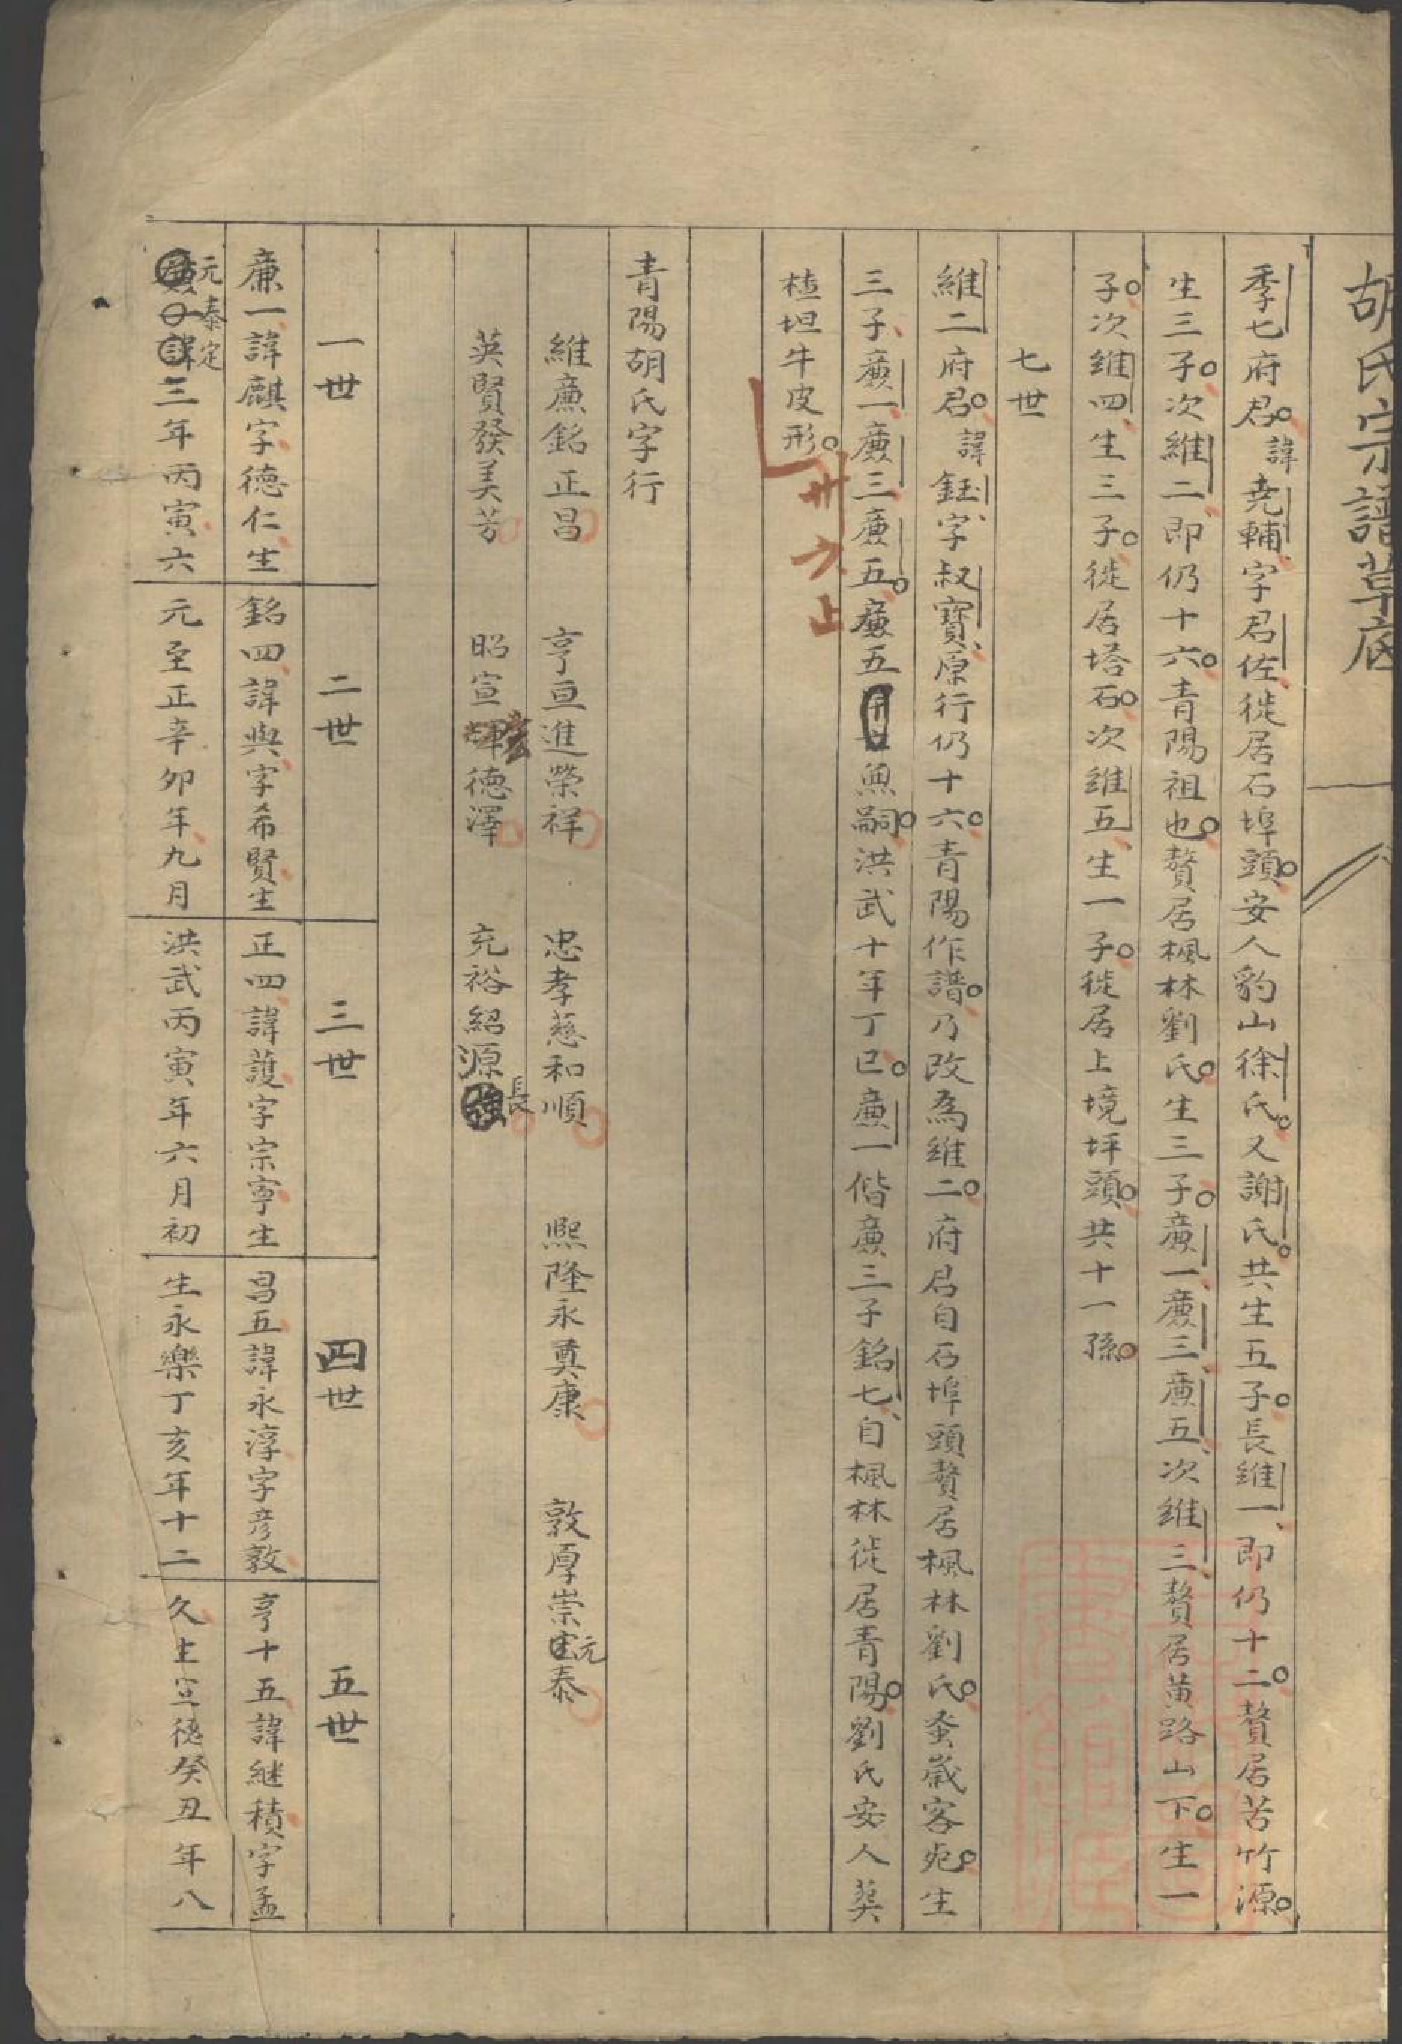 胡氏宗譜草底
季七府君諱堯輔字君佐徙居石埠頭安人豹山徐氏又謝氏共生五子長維一即仍十二贅居苦竹源
生三子次維二即仍十六青陽祖也贅居楓林劉氏生三子㢘一㢘三㢘五次維三贅居黄路山下生一
子次維四生三子徙居塔石次維五生一子徙居上境坪頭共十一孫
七世
維二府君諱鈺字叔寶原行仍十六青陽作譜乃改為維二府君自石埠頭贅居楓林劉氏蚤歲客死生
三子㢘一㢘三㢘五㢘五無嗣洪武十年丁巳㢘一偕㢘三子銘七自楓林徙居青陽劉氏安人葬
楂坦牛皮形
卅六上
青陽胡氏字行
維㢘銘正昌 亨亘進榮祥 忠孝慈和順 熙隆永奠康 敦厚崇元泰
英賢發美芳 昭宣德澤 充裕紹源長
一世 二世 三世 四世 五世
㢘一諱麒字德仁生 銘四諱與字希賢生 正四諱護字宗寧生 昌五諱永淳字彦敦 亨十五諱継積字孟
元泰定三年丙寅六 元至正辛卯年九月 洪武丙寅年六月初 生永樂丁亥年十二 久生宣德癸丑年八